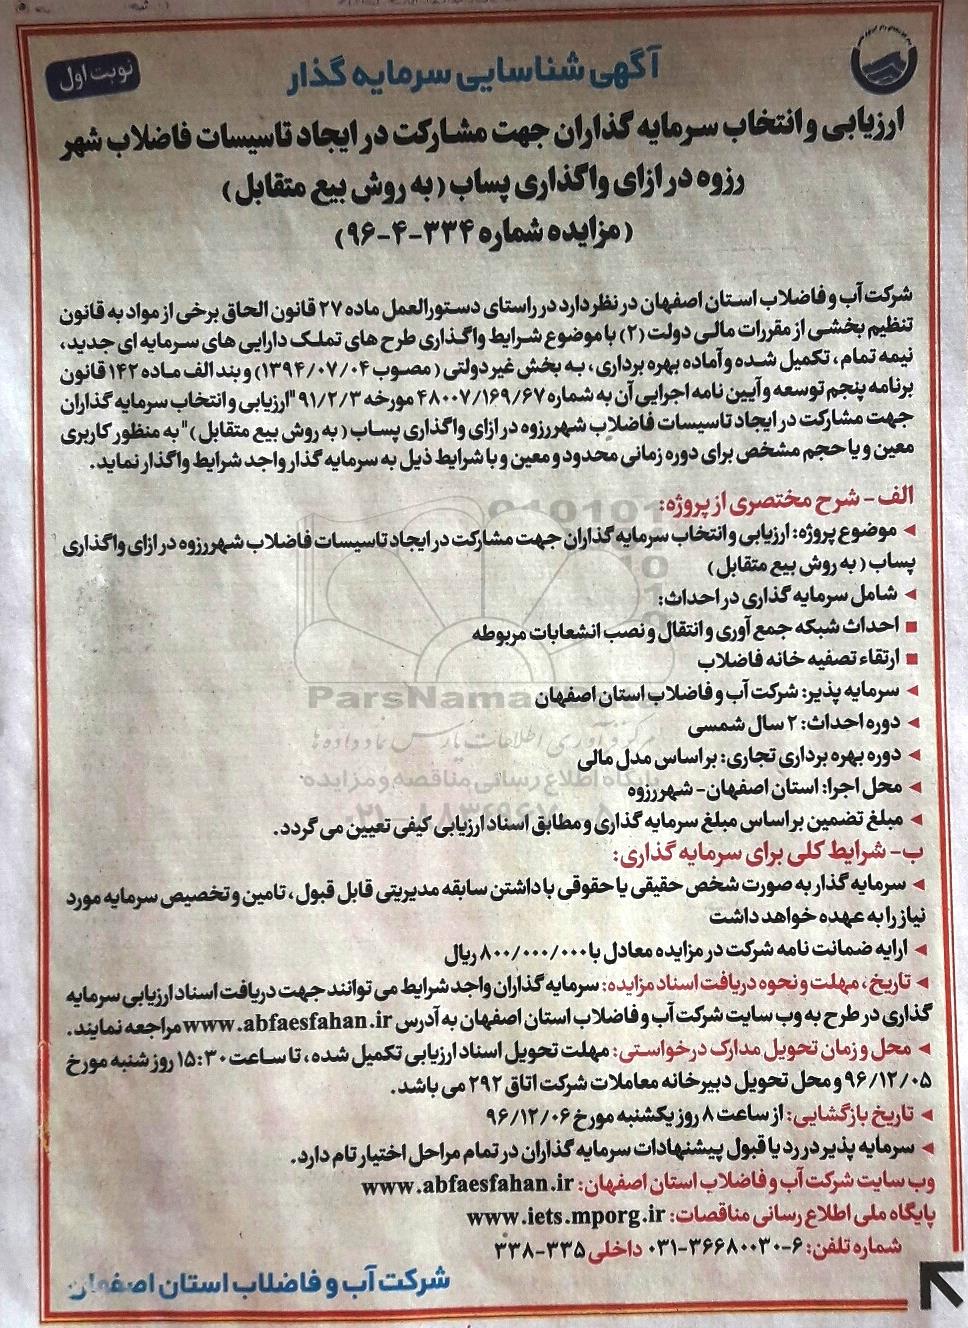 نوبت اول
آگهی شناسایی سرمایه گذار
ارزیابی و انتخاب سرمایه گذاران جهت مشارکت در ایجاد تاسیسات فاضلاب شهر
رزوه در ازای واگذاری پساب (به روش بیع متقابل)
(مزایده شماره ۳۳۴-۴-۹۶)
شرکت آب و فاضلاب استان اصفهان در نظر دارد در راستای دستورالعمل ماده ۲۷ قانون الحاق برخی از مواد به قانون
تنظیم بخشی از مقررات مالی دولت (۲) با موضوع شرایط واگذاری طرح های تملک دارایی های سرمایه ای جدید،
نیمه تمام، تکمیل شده و آماده بهره برداری، به بخش غیر دولتی (مصوب ۱۳۹۴/۰۷/۰۴) و بند الف ماده ۱۴۲ قانون
برنامه پنجم توسعه و آیین نامه اجرایی آن به شماره ۴۸۰۰۷/۱۶۹/۶۷ مورخه ۹۱/۲/۳ "ارزیابی و انتخاب سرمایه گذاران
جهت مشارکت در ایجاد تاسیسات فاضلاب شهر رزوه در ازای واگذاری پساب (به روش بیع متقابل)" به منظور کاربری
معین و یا حجم مشخص برای دوره زمانی محدود و معین و با شرایط ذیل به سرمایه گذار واجد شرایط واگذار نماید.
الف - شرح مختصری از پروژه:
◄ موضوع پروژه: ارزیابی و انتخاب سرمایه گذاران جهت مشارکت در ایجاد تاسیسات فاضلاب شهر رزوه در ازای واگذاری
پساب (به روش بیع متقابل)
◄ شامل سرمایه گذاری در احداث:
■ احداث شبکه جمع آوری و انتقال و نصب انشعابات مربوطه
■ ارتقاء تصفیه خانه فاضلاب
◄ سرمایه پذیر: شرکت آب و فاضلاب استان اصفهان
◄ دوره احداث: ۲ سال شمسی
◄ دوره بهره برداری تجاری: براساس مدل مالی
◄ محل اجرا: استان اصفهان- شهر رزوه
◄ مبلغ تضمین براساس مبلغ سرمایه گذاری و مطابق اسناد ارزیابی کیفی تعیین می گردد.
ب- شرایط کلی برای سرمایه گذاری:
◄ سرمایه گذار به صورت شخص حقیقی یا حقوقی با داشتن سابقه مدیریتی قابل قبول، تامین و تخصیص سرمایه مورد
نیاز را به عهده خواهد داشت
◄ ارایه ضمانت نامه شرکت در مزایده معادل با ۸۰۰/۰۰۰/۰۰۰ ریال
◄ تاریخ، مهلت و نحوه دریافت اسناد مزایده: سرمایه گذاران واجد شرایط می توانند جهت دریافت اسناد ارزیابی سرمایه
گذاری در طرح به وب سایت شرکت آب و فاضلاب استان اصفهان به آدرس www.abfaesfahan.ir مراجعه نمایند.
◄ محل و زمان تحویل مدارک درخواستی: مهلت تحویل اسناد ارزیابی تکمیل شده، تا ساعت ۱۵:۳۰ روز شنبه مورخ
۹۶/۱۲/۰۵ و محل تحویل دبیرخانه معاملات شرکت اتاق ۲۹۲ می باشد.
◄ تاریخ بازگشایی: از ساعت ۸ روز یکشنبه مورخ ۹۶/۱۲/۰۶
◄ سرمایه پذیر در رد یا قبول پیشنهادات سرمایه گذاران در تمام مراحل اختیار تام دارد.
وب سایت شرکت آب و فاضلاب استان اصفهان: www.abfaesfahan.ir
پایگاه ملی اطلاع رسانی مناقصات: www.iets.mporg.ir
شماره تلفن: ۶-۰۳۱-۳۶۶۸۰۰۳۰ داخلی ۳۳۵-۳۳۸
شرکت آب و فاضلاب استان اصفهان
ParsNamad
مرکز فرآوری اطلاعات پارس نماد داده ها
پایگاه اطلاع رسانی مناقصه و مزایده